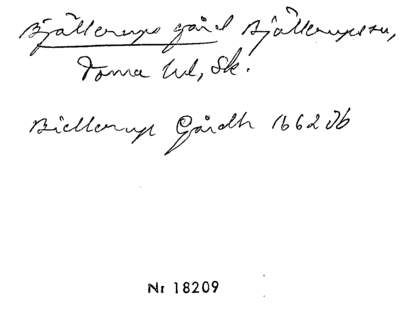 Bjällerups gård Bjällerups sn,
Torna hd, Sk.
Biellerup Gårdh 1662 Jb
Nr 18209